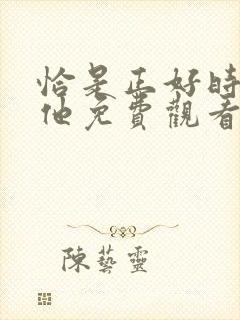 恰是正好時
他免費觀看
陳藝靈